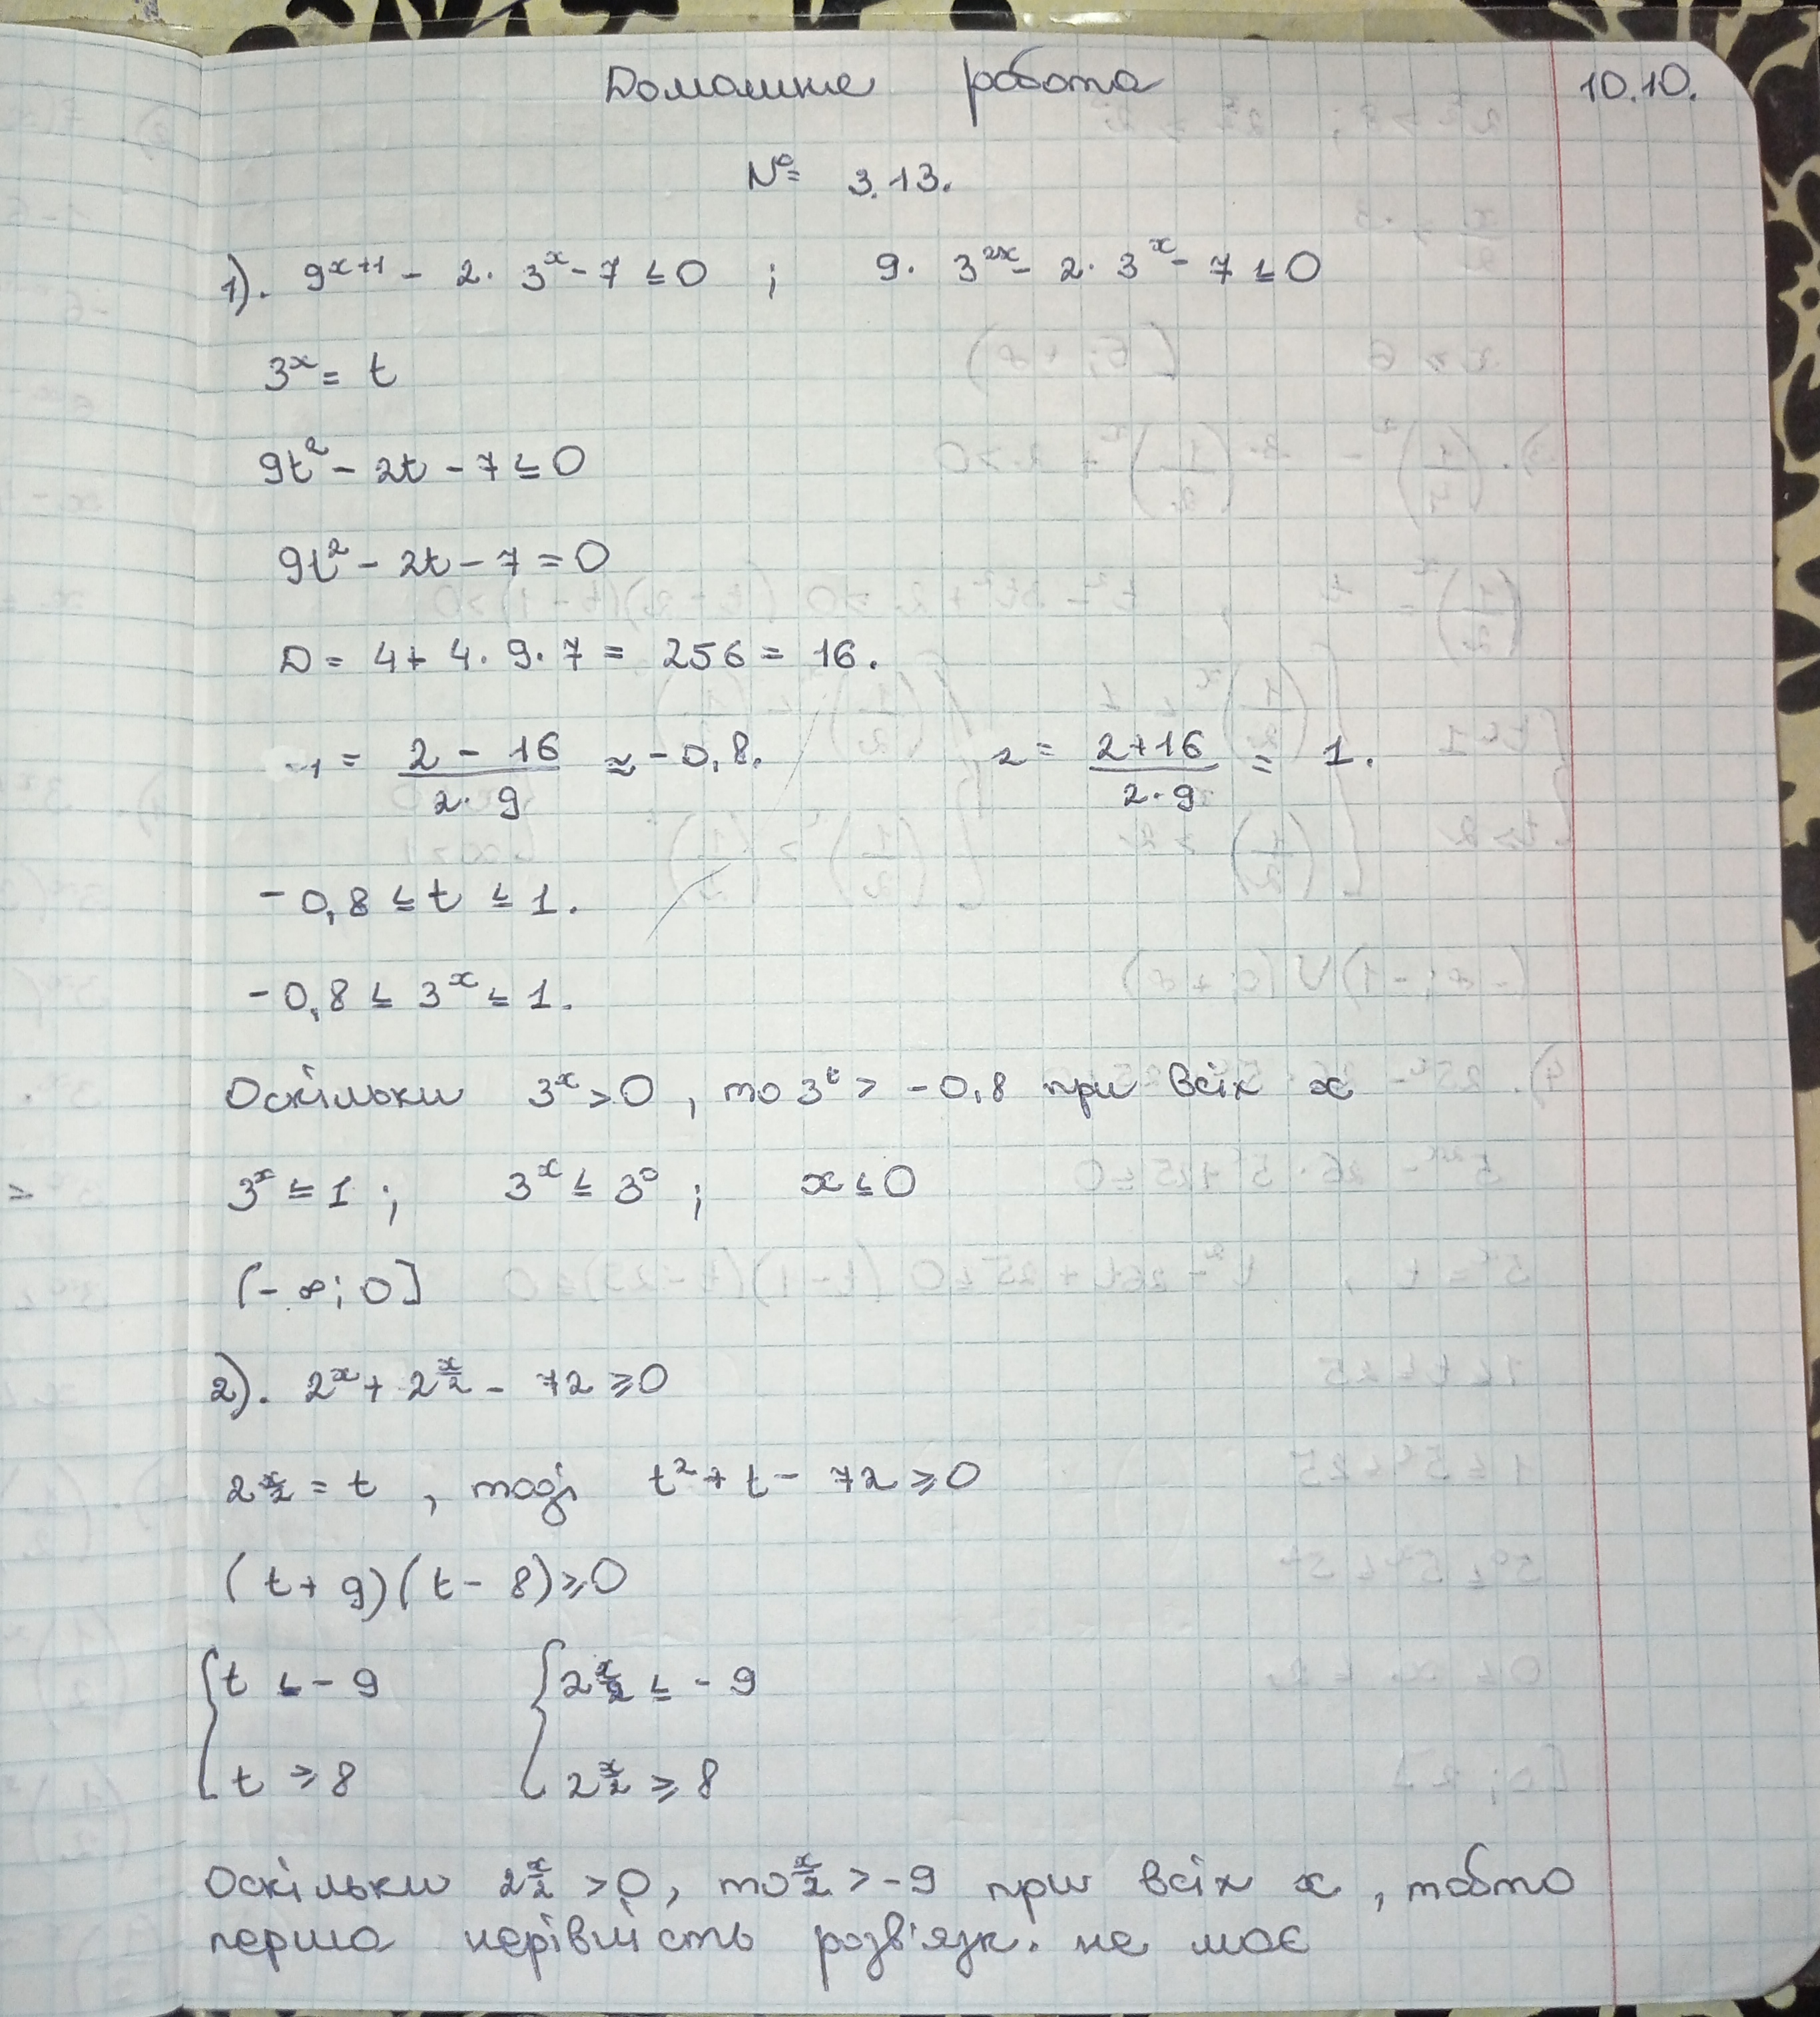 Домашнє робота 10.10.
№ 3.13.
1). 9^(x+1) - 2 · 3^x - 7 ≤ 0 ; 9 · 3^(2x) - 2 · 3^x - 7 ≤ 0
3^x = t
9t² - 2t - 7 ≤ 0
9t² - 2t - 7 = 0
D = 4 + 4 · 9 · 7 = 256 = 16.
₁ = (2 - 16)/(2 · 9) ≈ -0,8. ₂ = (2 + 16)/(2 · 9) = 1.
-0,8 ≤ t ≤ 1.
-0,8 ≤ 3^x ≤ 1.
Оскільки 3^x > 0 , то 3^t > -0,8 при всіх x
3^x ≤ 1 ; 3^x ≤ 3^0 ; x ≤ 0
(-∞; 0]
2). 2^x + 2^(x/2) - 72 ≥ 0
2^(x/2) = t , тоді t² + t - 72 ≥ 0
(t + 9)(t - 8) ≥ 0
{ t ≤ -9 { 2^(x/2) ≤ -9
t ≥ 8 2^(x/2) ≥ 8
Оскільки 2^(x/2) > 0, то x/2 > -9 при всіх x , тобто
перша нерівність розв'язк. не має